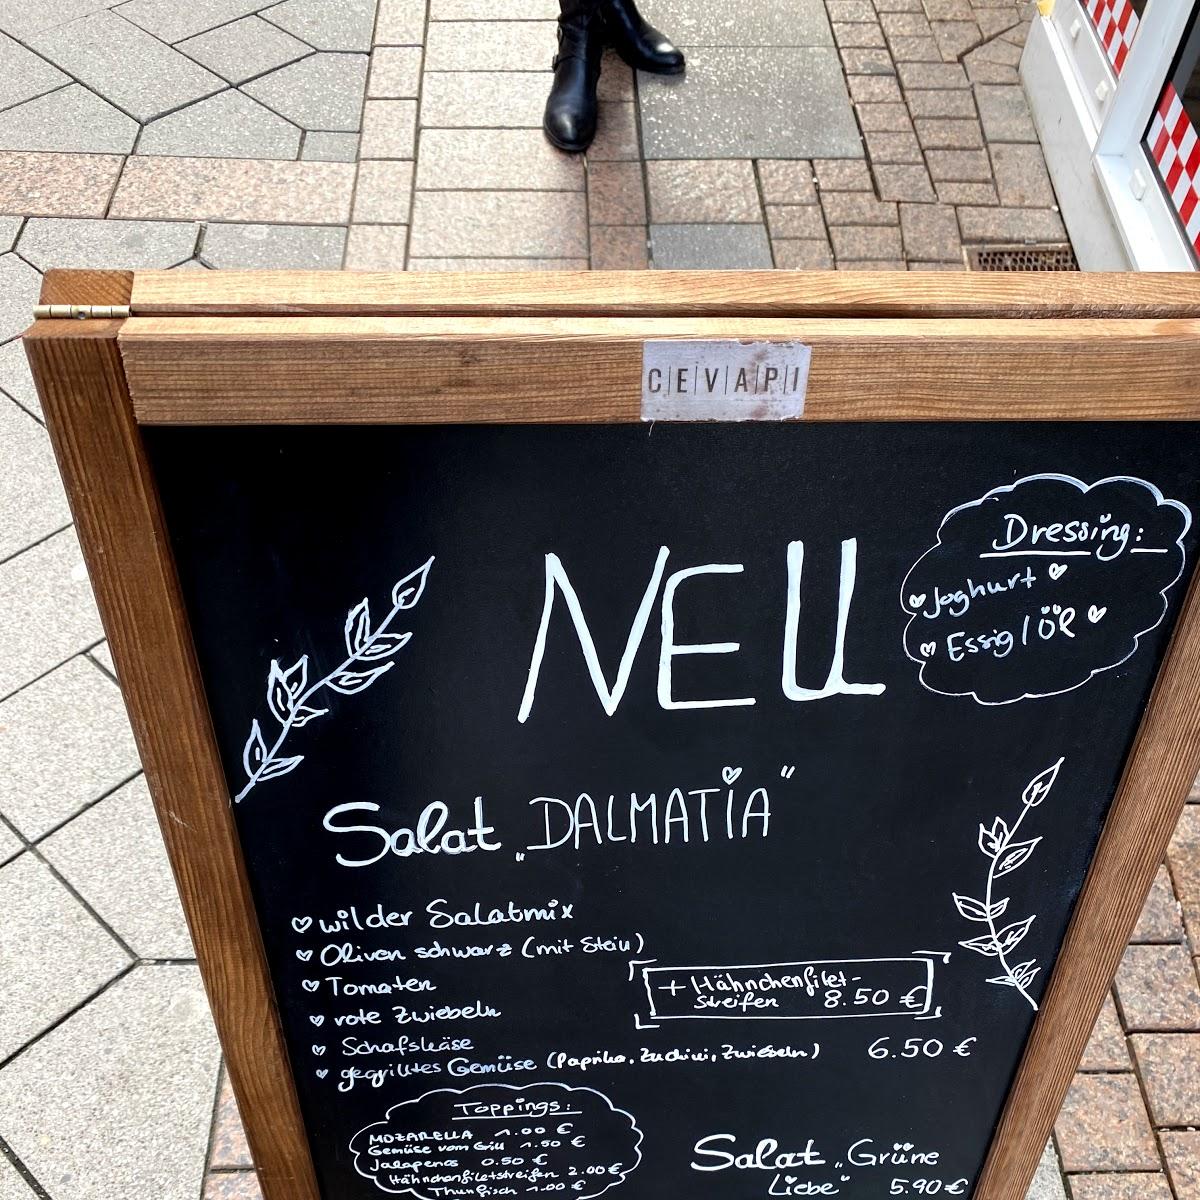 C|E|V|A|P|I
NEU
Dressing:
Joghurt
Essig/Öl
Salat „DALMATIA"
wilder Salatmix
Oliven schwarz (mit Stein)
Tomaten
rote Zwiebeln
Schafskäse
gegrilltes Gemüse (Paprika, Zuchini, Zwiebeln)
+ Hähnchenfilet-
streifen 8.50 €
6.50 €
Toppings:
MOZARELLA 1.00 €
Gemüse vom Grill 1.50 €
Jalapenos 0.50 €
Hähnchenfiletstreifen 2.00€
Thunfisch 1.00 €
Salat „Grüne
Liebe" 5.90€